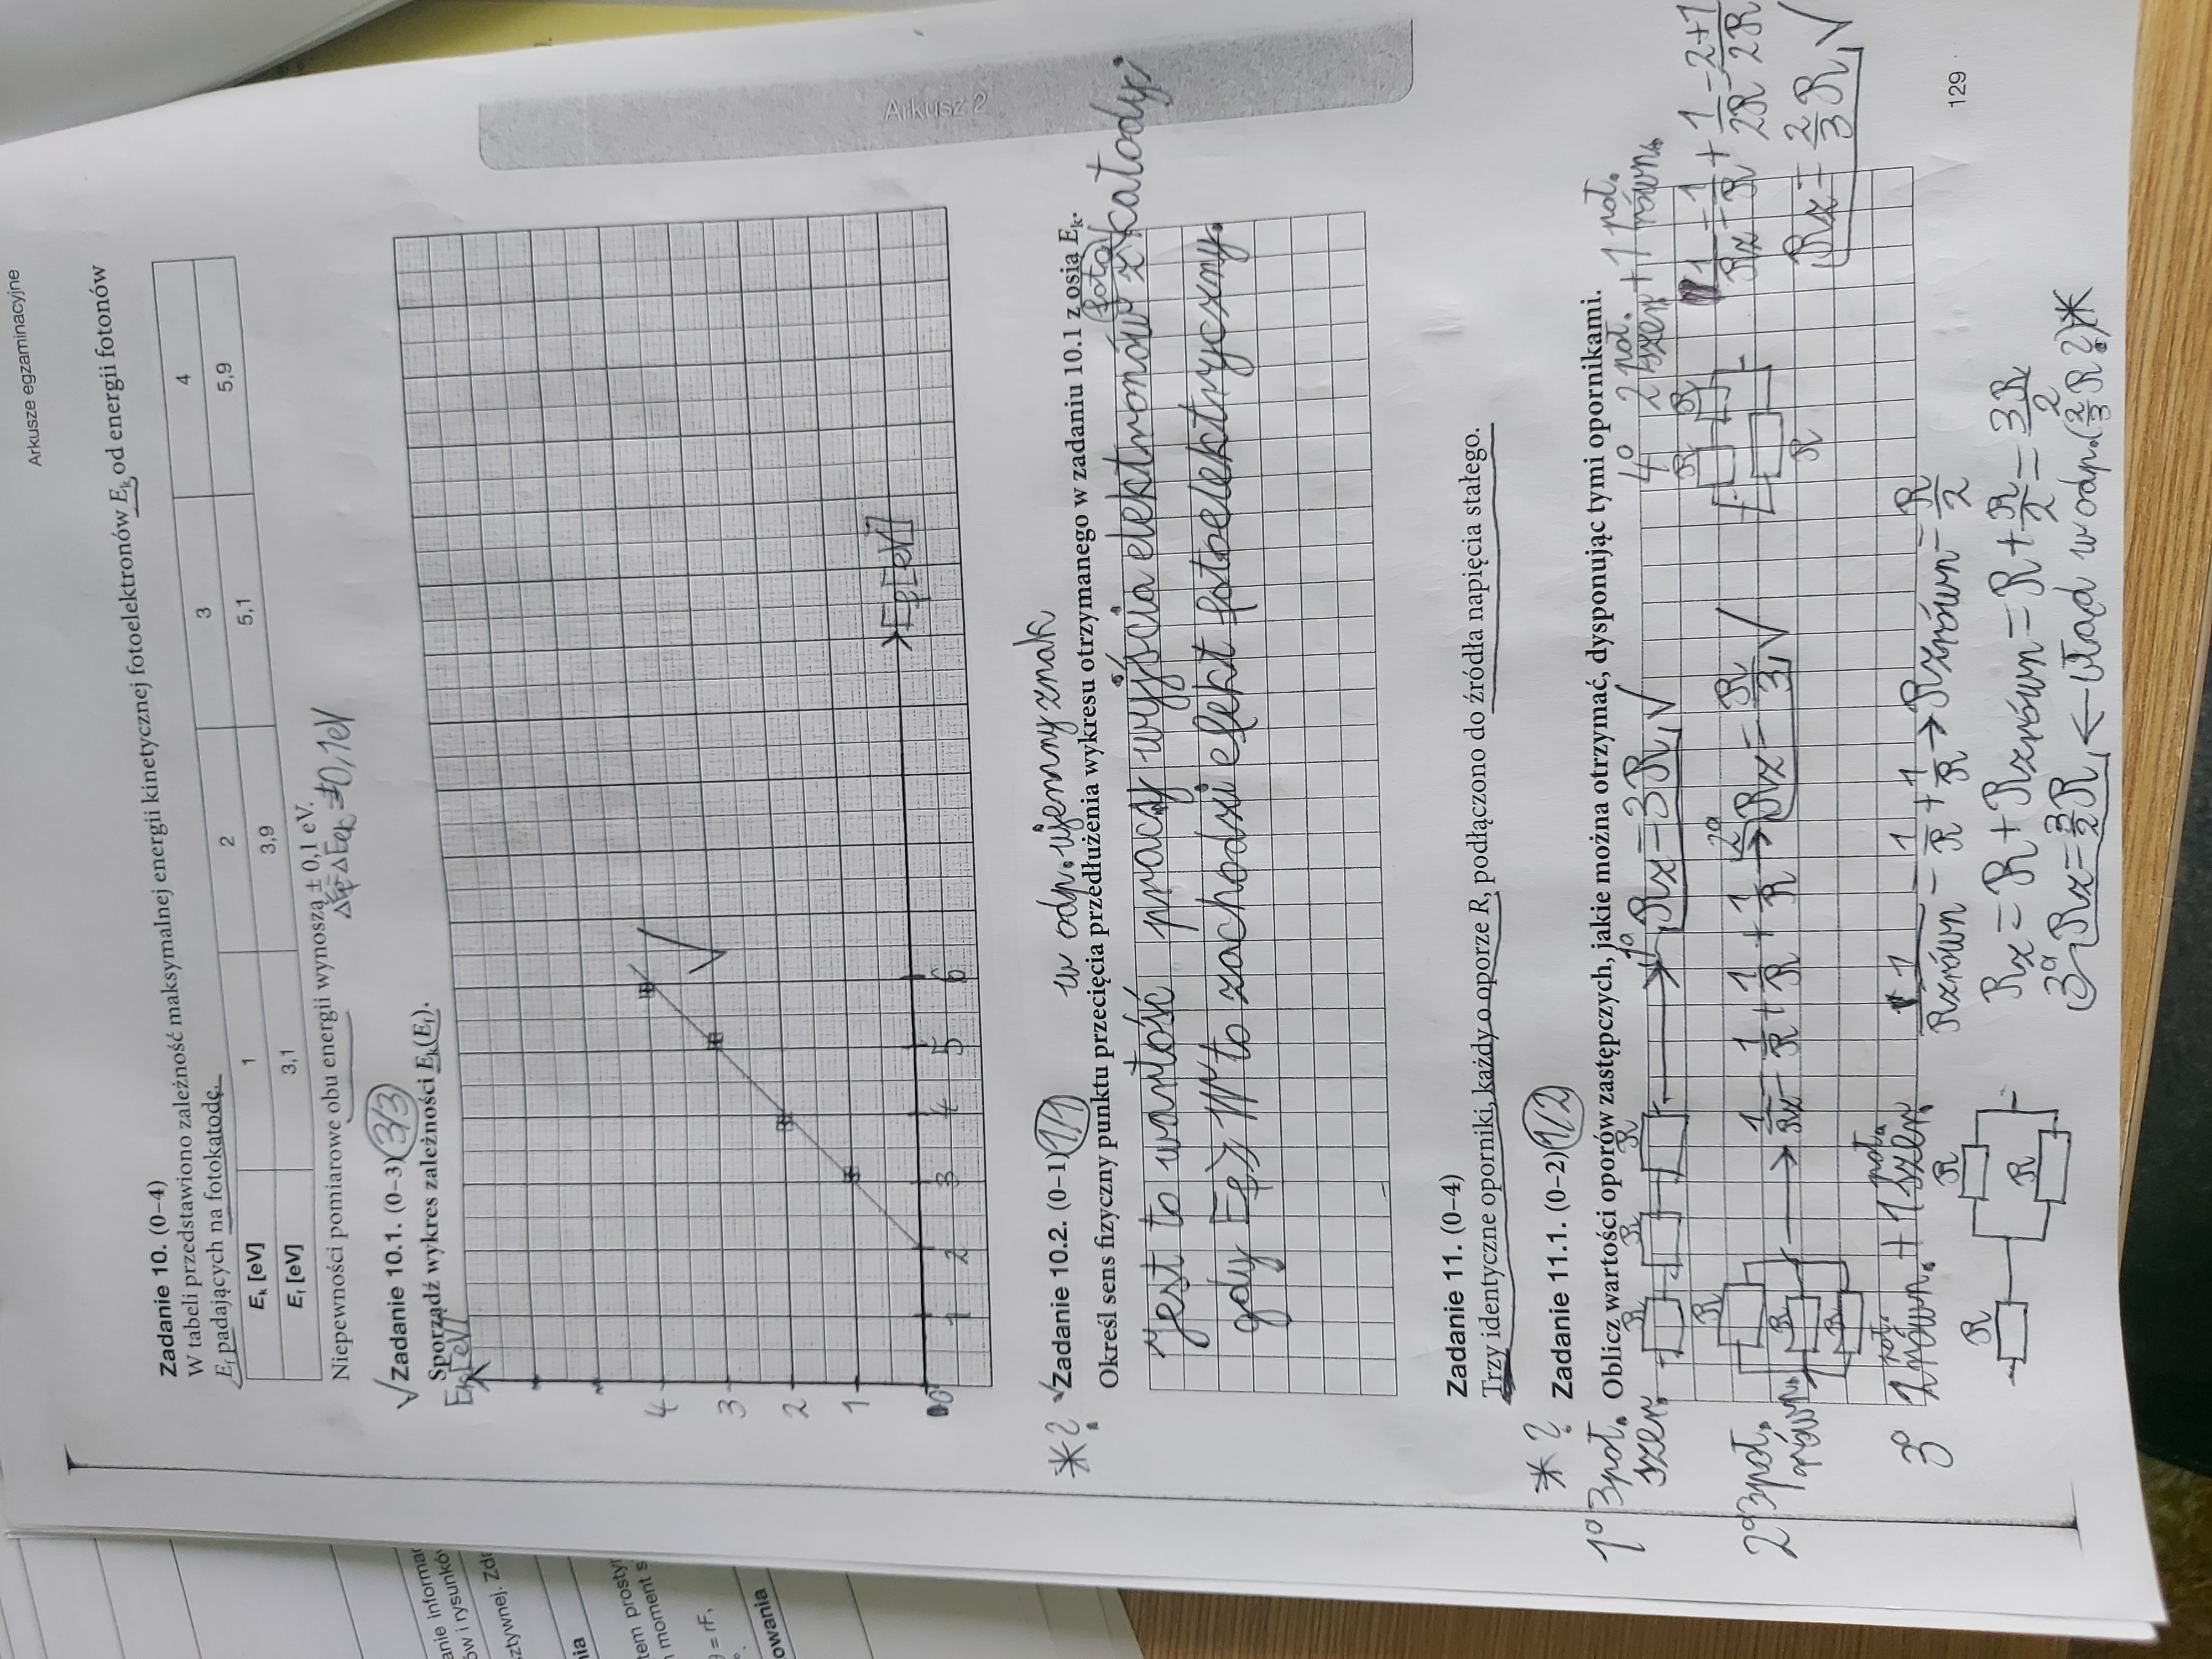 Arkusze egzaminacyjne
Zadanie 10. (0–4)
W tabeli przedstawiono zależność maksymalnej energii kinetycznej fotoelektronów Ek od energii fotonów
Ef padających na fotokatodę.
Ek [eV] 1 2 3 4
Ef [eV] 3,1 3,9 5,1 5,9
Niepewności pomiarowe obu energii wynoszą ± 0,1 eV.
±0,1eV
√Zadanie 10.1. (0–3) 3/3
Sporządź wykres zależności Ek(Ef).
Ek[eV]
4
3
2
1
0 1 2 3 4 5 6
Ef[eV]
Arkusz 2
w odp. ujemny znak
*? √Zadanie 10.2. (0–1) 1/1
Określ sens fizyczny punktu przecięcia przedłużenia wykresu otrzymanego w zadaniu 10.1 z osią Ek.
Jest to wartość pracy wyjścia elektronów z (foto)katody;
gdy Ef≥W to zachodzi efekt fotoelektryczny.
Zadanie 11. (0–4)
Trzy identyczne oporniki, każdy o oporze R, podłączono do źródła napięcia stałego.
* ? Zadanie 11.1. (0–2) 1/2
Oblicz wartości oporów zastępczych, jakie można otrzymać, dysponując tymi opornikami.
1° 3poł. szer.
R R R → 1° Rz=3R √
2° 3poł. równ.
R R R → 1/Rz = 1/R + 1/R + 1/R → 2° Rz = R/3 √
3° 1 poł. równ. + 1 poł. szer.
R R R
1/Rzrówn = 1/R + 1/R → Rzrówn = R/2
Rz = R + Rzrówn = R + R/2 = 3R/2
3° Rz = 3/2 R ← błąd w odp. (2/3 R ?)*
4° 2 poł. szer + 1 poł. równ.
R R R
1/Rz = 1/R + 1/2R = 2+1/2R
Rz = 2/3 R √
129
anie informa
ów i rysunkó
sztywnej. Zd
nia
tem prosty
moment s
= rF,
owania